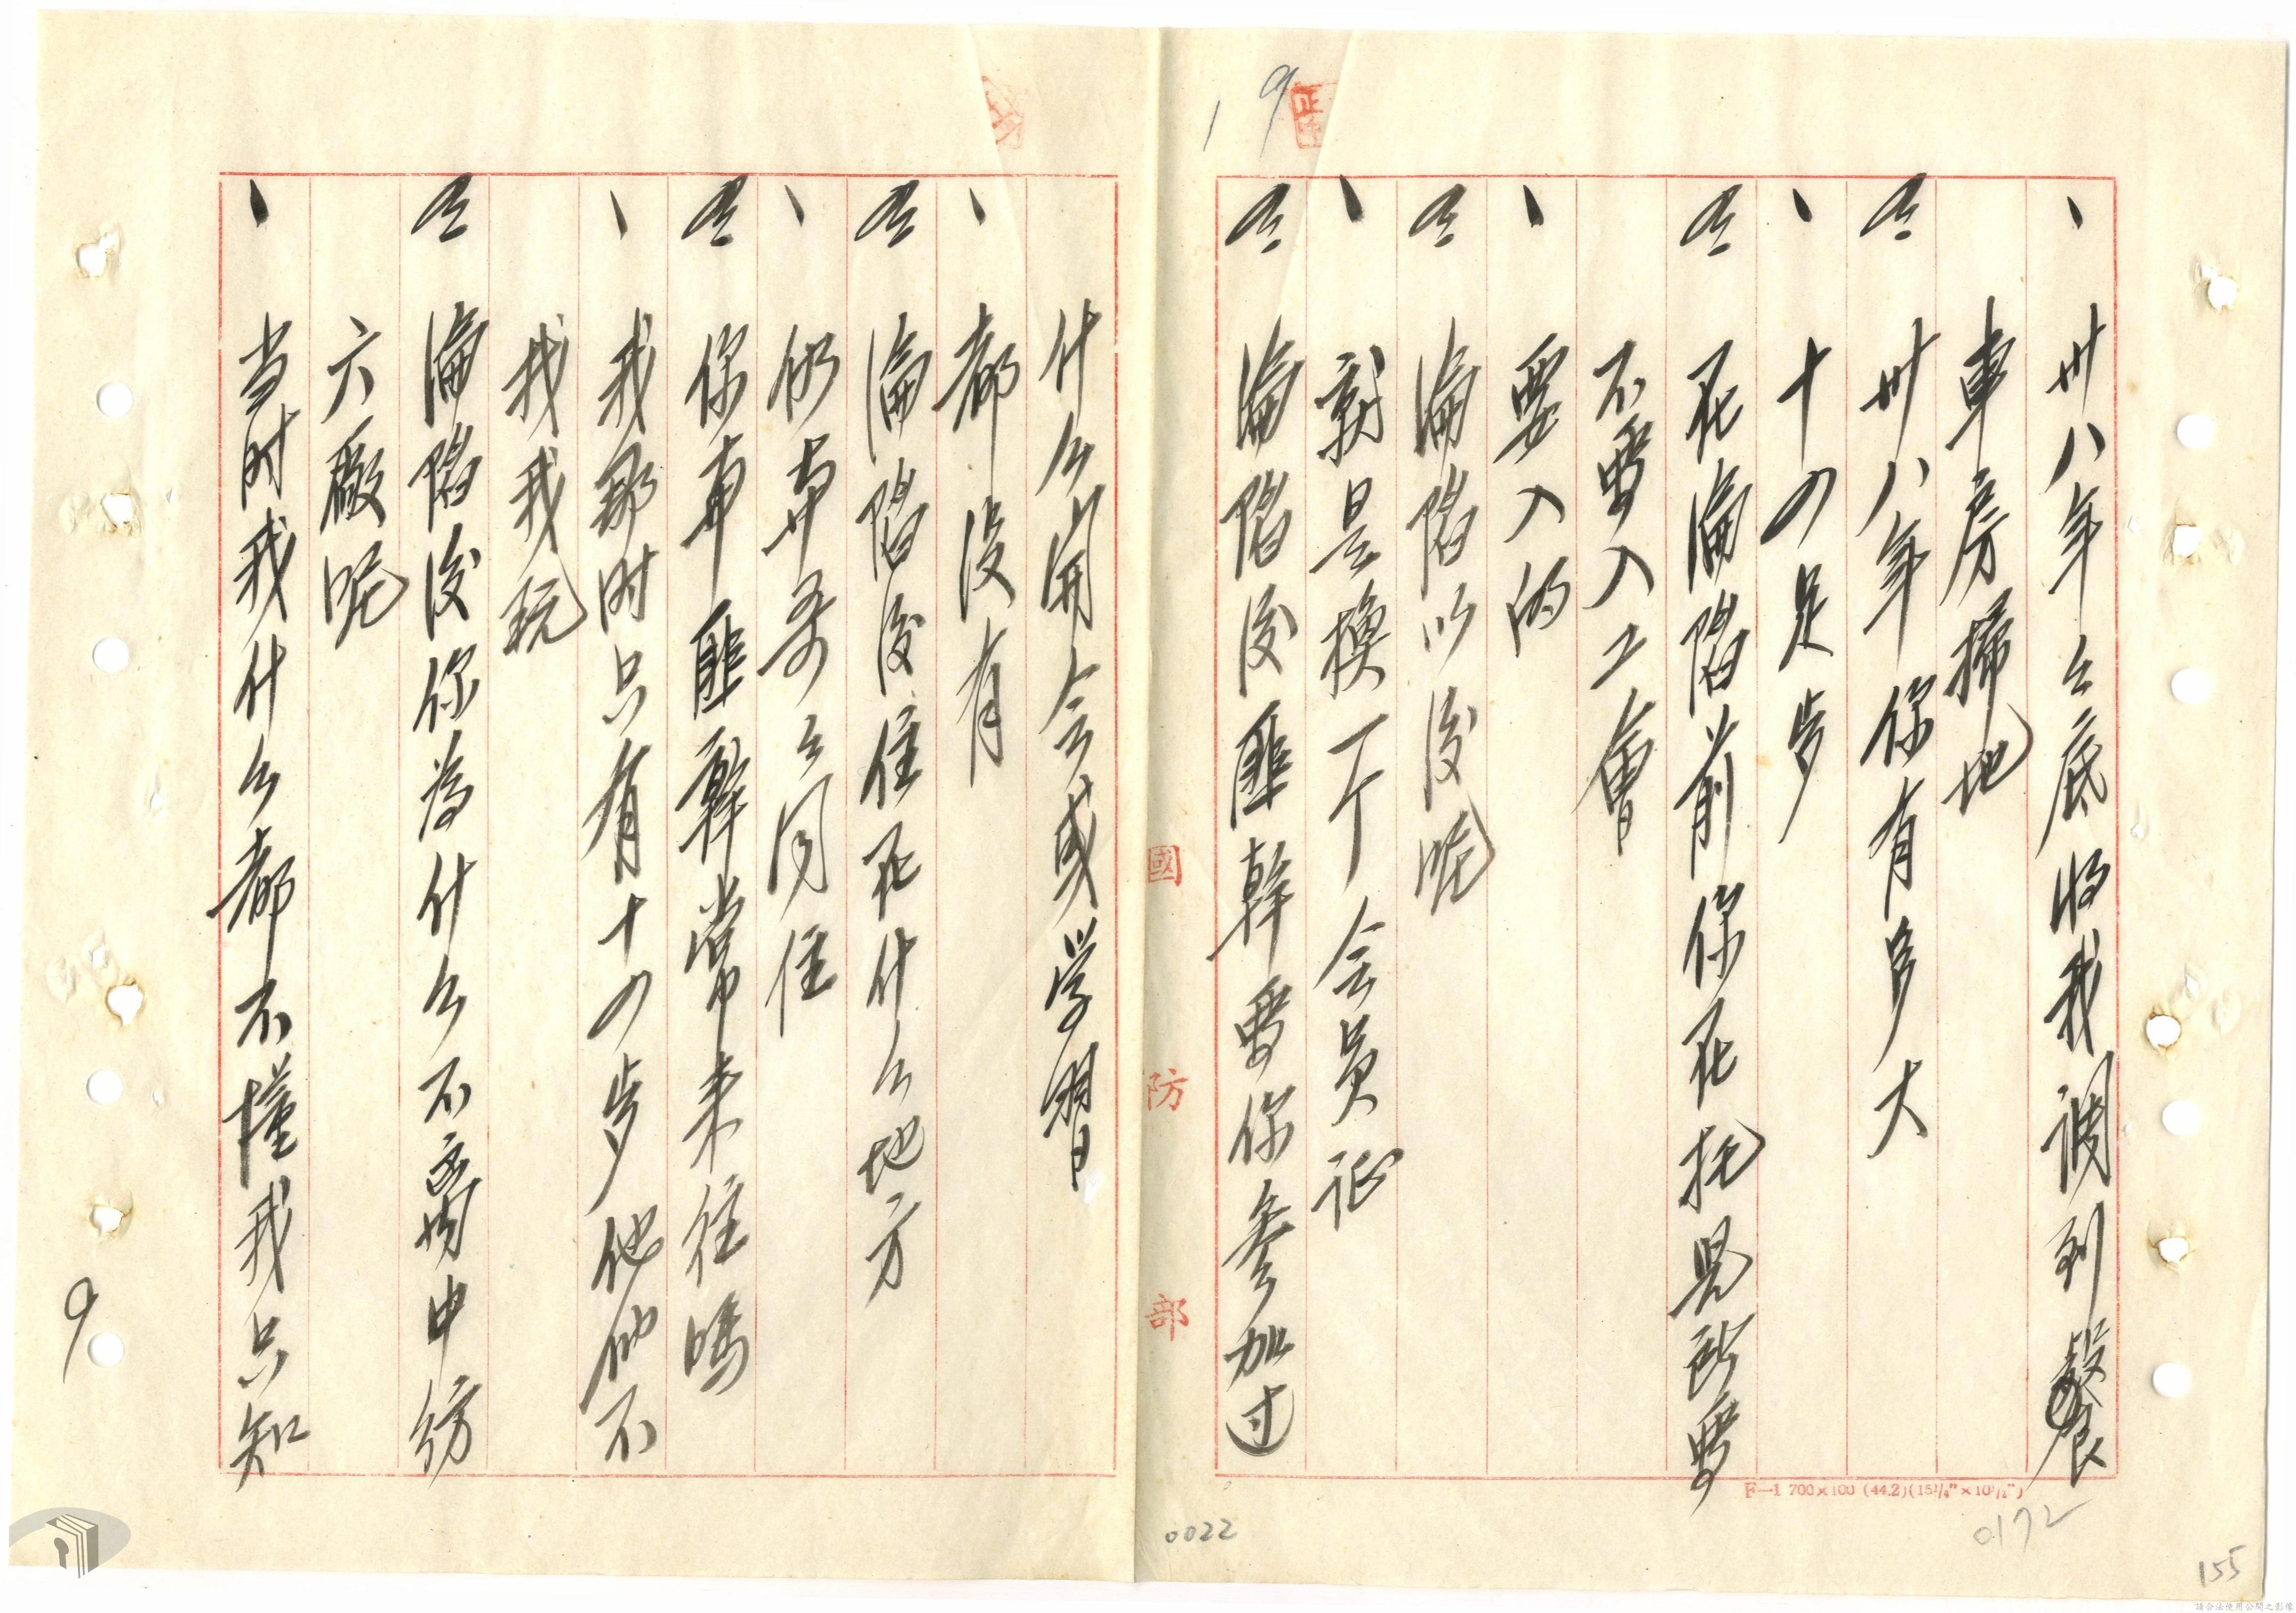 19
、卅八年年底收我調到餐
車房掃地
問 卅八年你有多大
、十四足歲
問 在淪陷前你在托兒所要
不要入工會
、要入的
問 淪陷以後呢
、就是換一个会員证
問 淪陷後匪幹要你參加过
什么開会或学習
、都沒有
問 淪陷後住在什么地方
、仍本弄公同住
問 你本匪幹常来往嗎
、我那时只有十四歲他們不
找我玩
問 淪陷後你為什么不离開中紡
六廠呢
、当时我什么都不懂我只知
9
國防部
F—1 700×100 (44.2)
0022
0172
155
請合法使用公開之影像